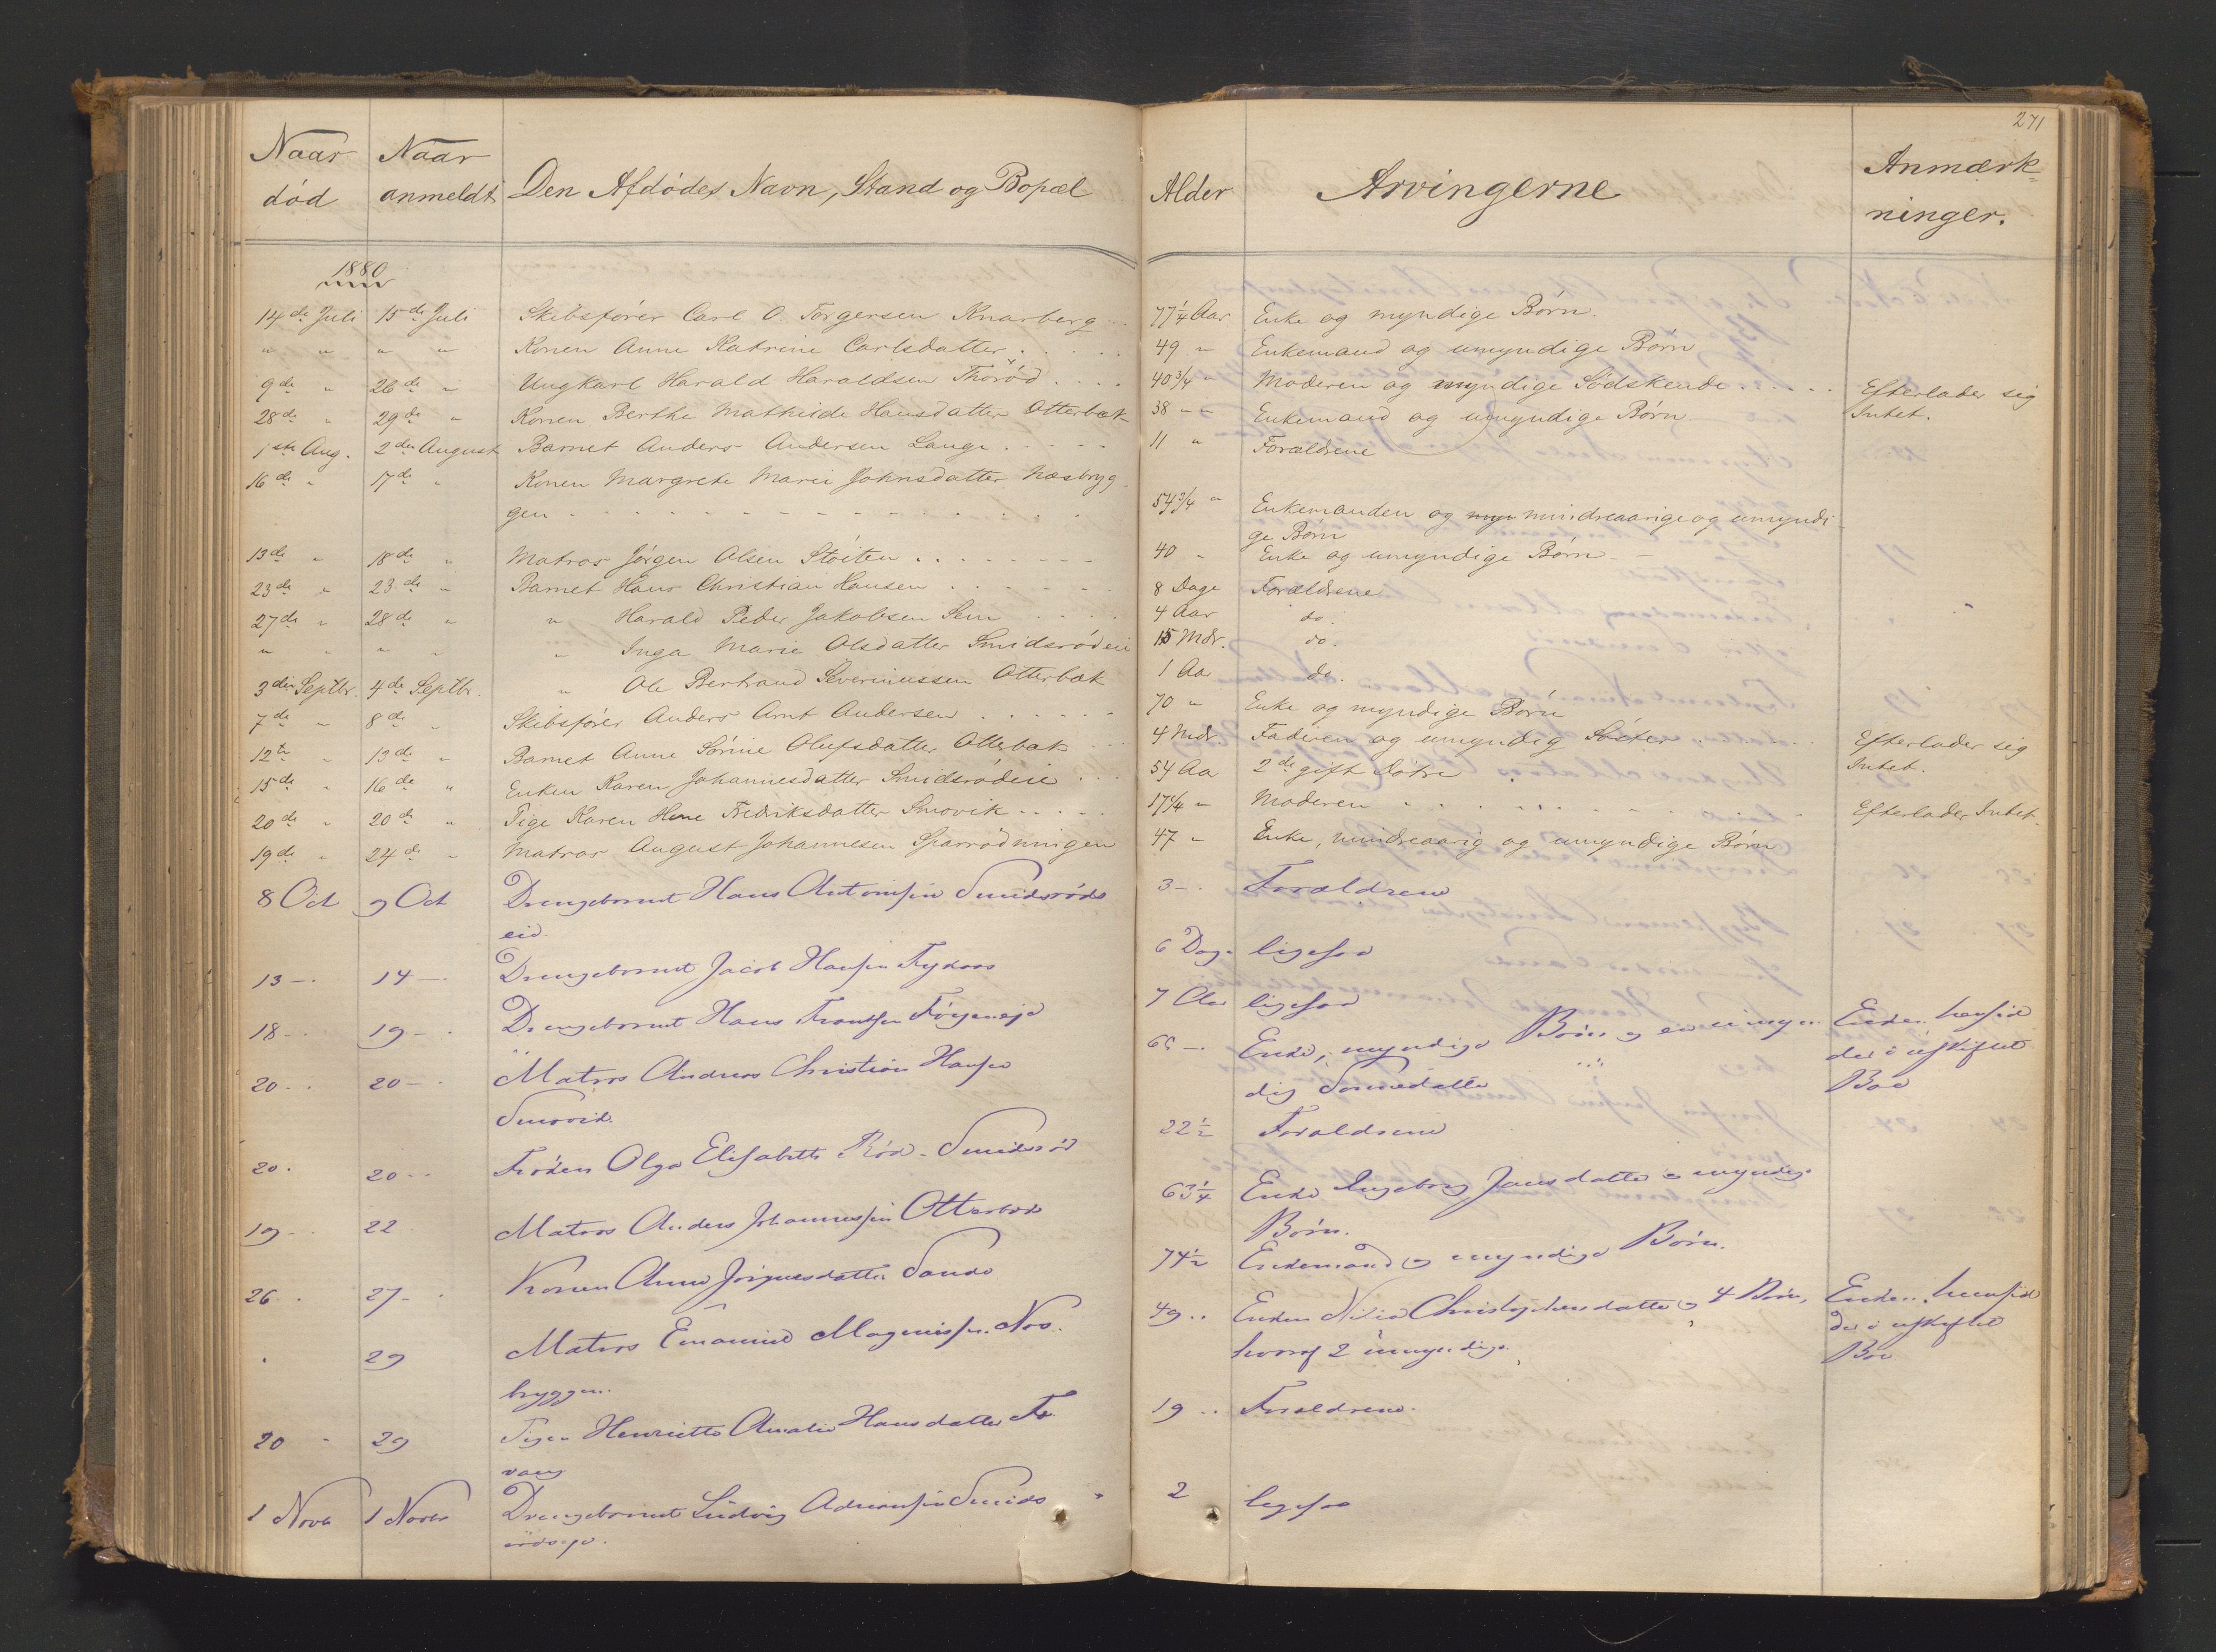 271
Naar død
Naar anmeldt
Den Afdødes Navn, Stand og Bopæl
Alder
Arvingerne
Anmærkninger.
1880
14de Juli 15de Juli Skibsfører Carl O. Torgersen Knarberg 77 1/4 Aar Enke og myndige Børn.
" " " " Konen Anne Katrine Carlsdatter 49 " Enkemand og umyndige Børn
9de " 26de " Ungkarl Harald Haraldsen Thorød 40 3/4 " Moderen og myndige Sødskende Efterlader sig
Intet.
28de " 29de " Konen Berthe Mathilde Hansdatter Otterbæk 38 " Enkemand og umyndige Børn.
1ste Aug. 2den August Barnet Anders Andersen Lauge 11 " Forældrene
16de " 17de " Konen Margrete Marie Johnsdatter Næsbryg-
gen 54 3/4 " Enkemanden og myn mindreaarige og umyndi-
ge Børn
13de " 18de " Matros Jørgen Olsen Støiten 40 " Enke og umyndige Børn
23de " 23de " Barnet Hans Christian Hansen 8 Dage Forældrene
27de " 28de " " Harald Peder Jakobsen Sem 4 Aar do.
" " " " " Inga Marie Olsdatter Smidsrødeie 15 Mdr. do.
3die Septbr. 4de Septbr. " Ole Bertrand Severinussen Otterbæk 1 Aar do.
7de " 8de " Skibsfører Anders Arnt Andersen 70 " Enke og myndige Børn
12te " 13de " Barnet Anne Sørine Olufsdatter Otterbæk 4 Mdr. Faderen og umyndig Søster Efterlader sig
Intet.
15de " 16de " Enken Karen Johannesdatter Smidsrødeie 54 Aar 2de gift Døtre
20de " 20de " Pige Karen Fredriksdatter Smovik 17 1/4 " Moderen Efterlader Intet.
19de " 24de " Matros August Johannesen Sparrødningen 47 " Enke, mindreaarig og umyndige Børn
8 Oct 9 Oct Drengebarnet Hans Antonsen Smidsrøds
eid. 3 - Forældrene
13 - 14 - Drengebarnet Jacob Hansen 6 Dage ligesaa
18 - 19 - Drengebarnet Hans Frantsen 7 Aar ligesaa
20 - 20 - Matros Andreas Christian Hansen
Smovik. Enke, myndige Børn og en umyn-
dig Sønnedatter Enken hensid
der i uskiftet
Bo
20 - 20 - Frøken Olga Elisabeth Rød - Smidsrød 22 1/2 Forældrene
19 - 22 Matros Anders Johannessen Otterbæk 63 1/4 Enke Ingeborg Jansdatter og myndige
Børn.
26 - 27 - Konen Anne Jørgensdatter Sande 74 1/2 Enkemand og myndige Børn.
" 29 Matros Emanuel Magnussen Næs-
bryggen. 49 Enken Christophersdatter og 4 Børn,
hvoraf 2 umyndige. Enken hensid
der i uskiftet
Bo
20 - 29 Pigen Henriette Amalie Hansdatter
vang 19 Forældrene.
1 Novb 1 Novbr Drengebarnet Ludvig Adriansen Smids
2 ligesaa